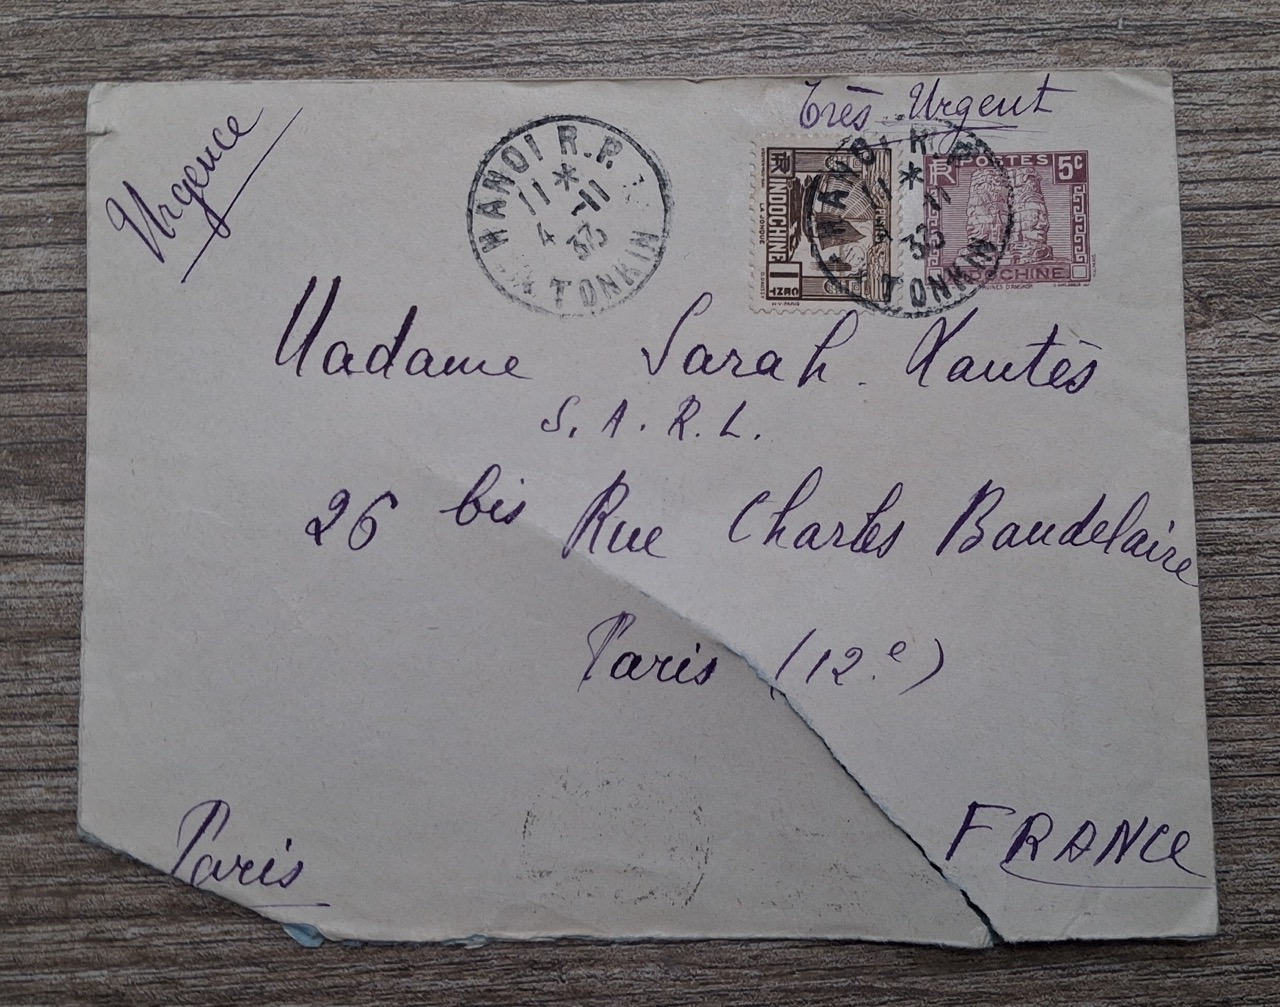 Très Urgent
Urgence
HANOI R.P.
11 * -11
4 33
TONKIN
RF INDOCHINE
POSTES
1 CENT
LA JONQUE
HANOI R.P.
11 * 11
33
TONKIN
RF POSTES 5c
INDOCHINE
RUINES D'ANGKOR
Madame Sarah Xantès
S.A.R.L.
26 bis Rue Charles Baudelaire
Paris (12e)
Paris
FRANCE